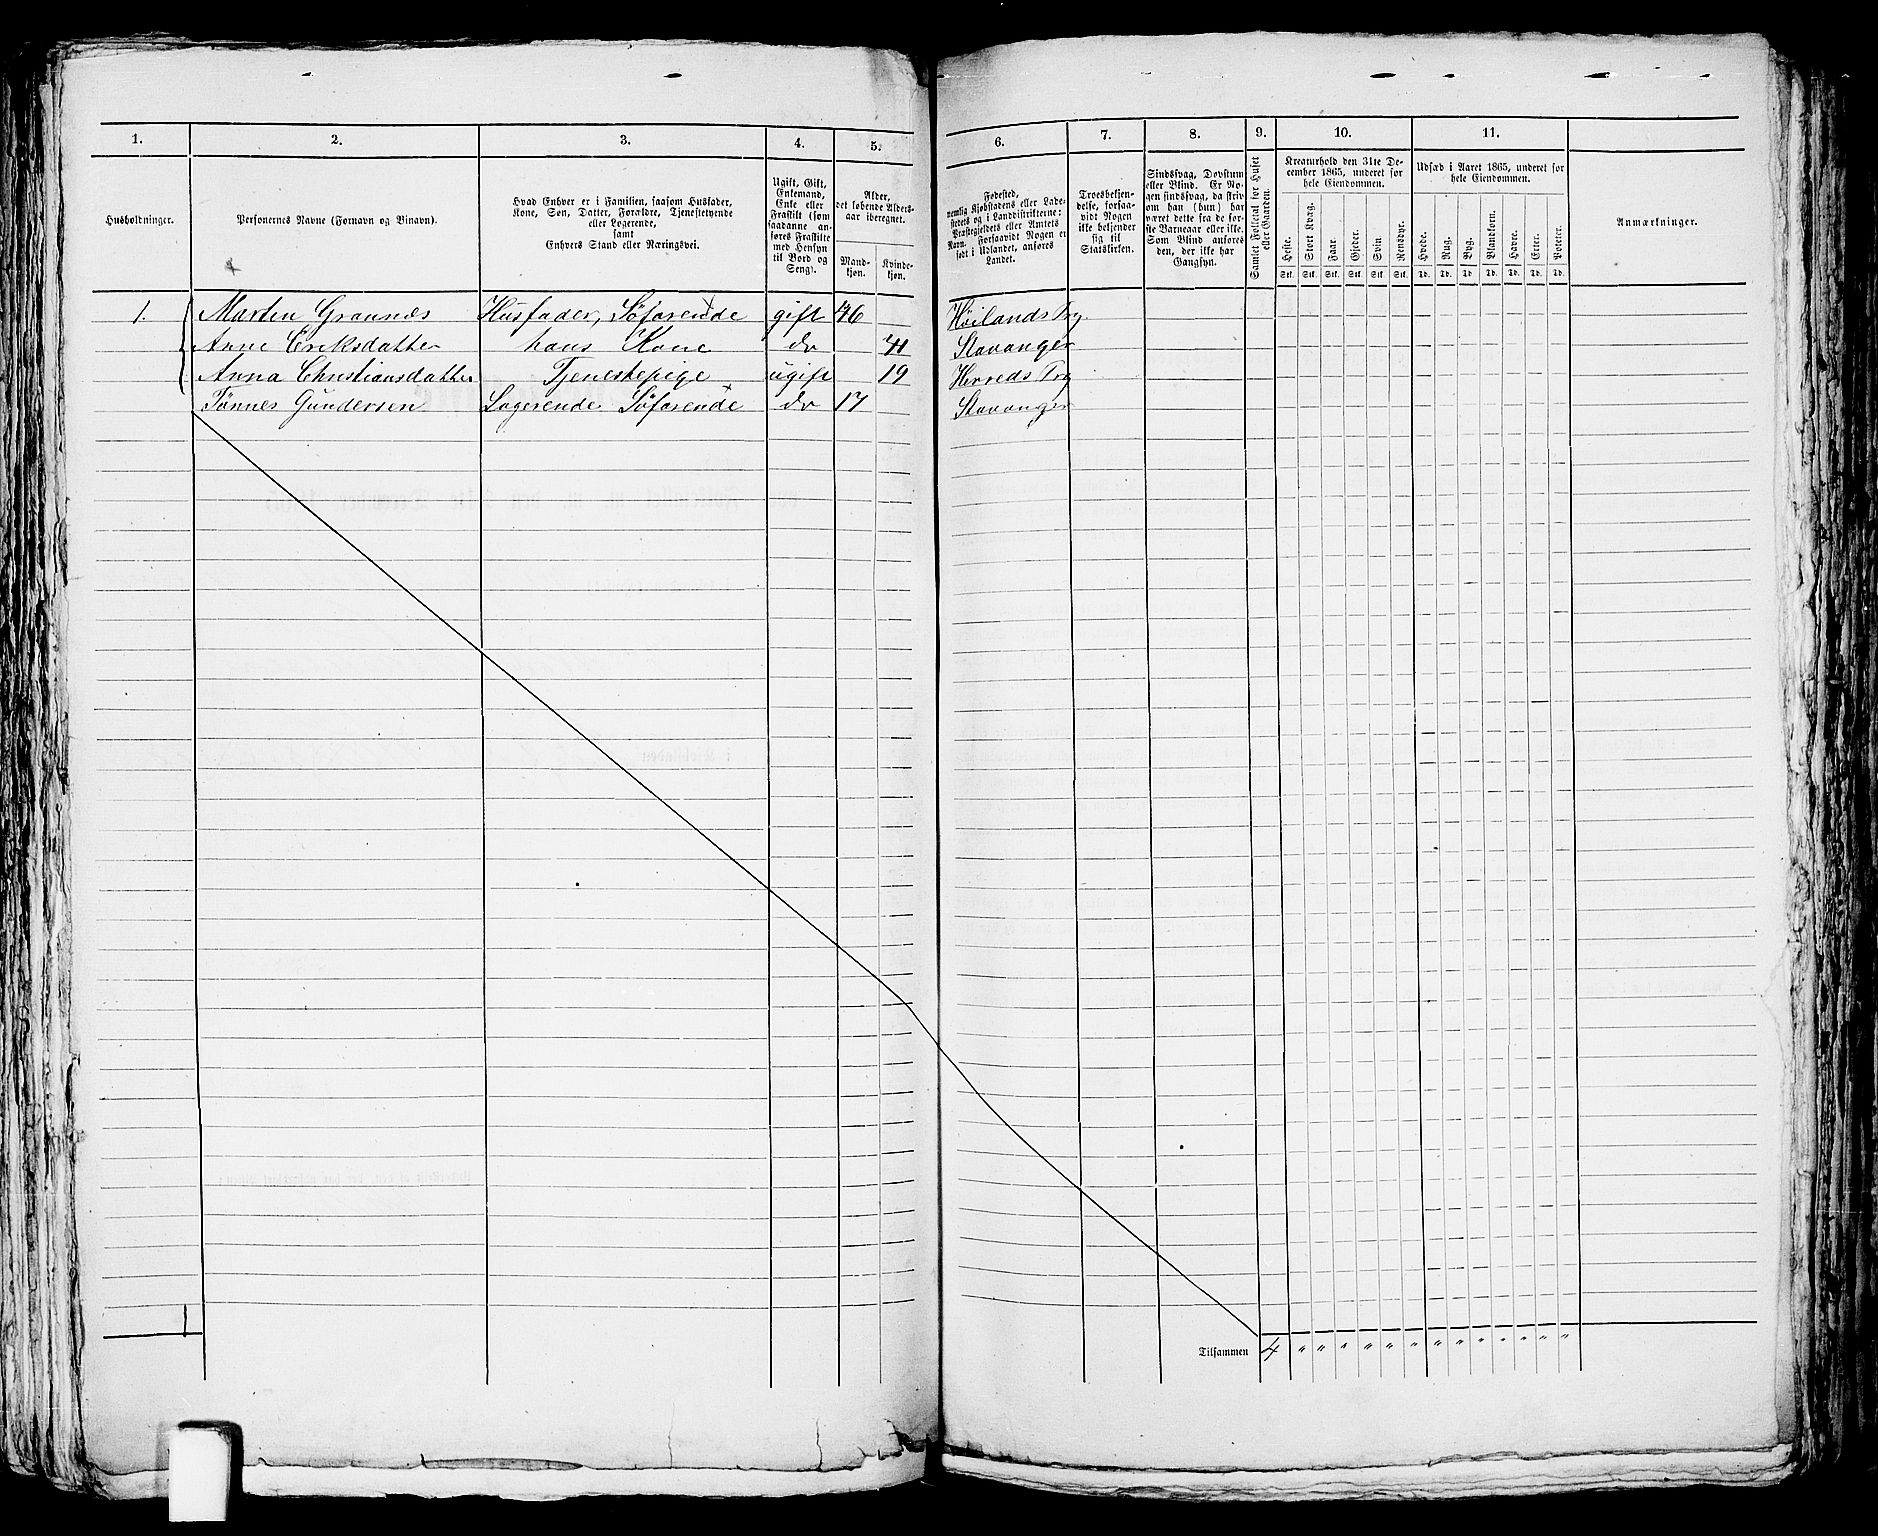 1. 2. 3. 4. 5. 6. 7. 8. 9. 10. 11.
Husholdninger.
Personernes Navne (Fornavn og Binavn).
Hvad Enhver er i Familien, saasom Husfader,
Kone, Søn, Datter, Forældre, Tjenestetyende
eller Logerende,
samt
Enhvers Stand eller Næringsvei.
Ugift, Gift,
Enkemand,
Enke eller
Fraskilt (som
saadanne anføres Fraskilte
med Hensyn
til Bord og
Seng).
Alder,
det løbende Aldersaar iberegnet.
Mandkjøn.
Kvindekjøn.
Fødested,
nemlig Kjøbstadens eller Ladestedets og i Landdistrikterne:
Præstegjeldets eller Amtets
Navn. Forsaavidt Nogen er
født i Udlandet, anføres
Landet.
Troesbekjendelse, forsaavidt Nogen
ikke bekjender
sig til
Statskirken.
Sindssvag, Døvstum
eller Blind. Er Nogen sindssvag, da skriv
om han (hun) har
været dette fra de første Barneaar eller ikke.
Som Blind anføres
den, der ikke har
Gangsyn.
Samlet Folketal for Huset
eller Gaarden.
Kreaturhold den 31te December 1865, underet for
hele Eiendommen.
Heste. Stort Kvæg. Faar. Gjeder. Svin. Rensdyr.
Stk. Stk. Stk. Stk. Stk. Stk.
Udsæd i Aaret 1865, underet for
hele Eiendommen.
Hvede. Rug. Byg. Blandkorn. Havre. Erter. Poteter.
Td. Td. Td. Td. Td. Td. Td.
Anmærkninger.
1. Marten Graunæs Husfader, Søfarende gift 46 Höilands Prg
Anne Eriksdatter hans Kone do 41 Stavanger
Anna Christiansdatter Tjenestepige ugift 19 Herreds Prg
Tönnes Gundersen Logerende Søfarende do 17 Stavanger
1
Tilsammen 4 " " " " " " " " " " " " "